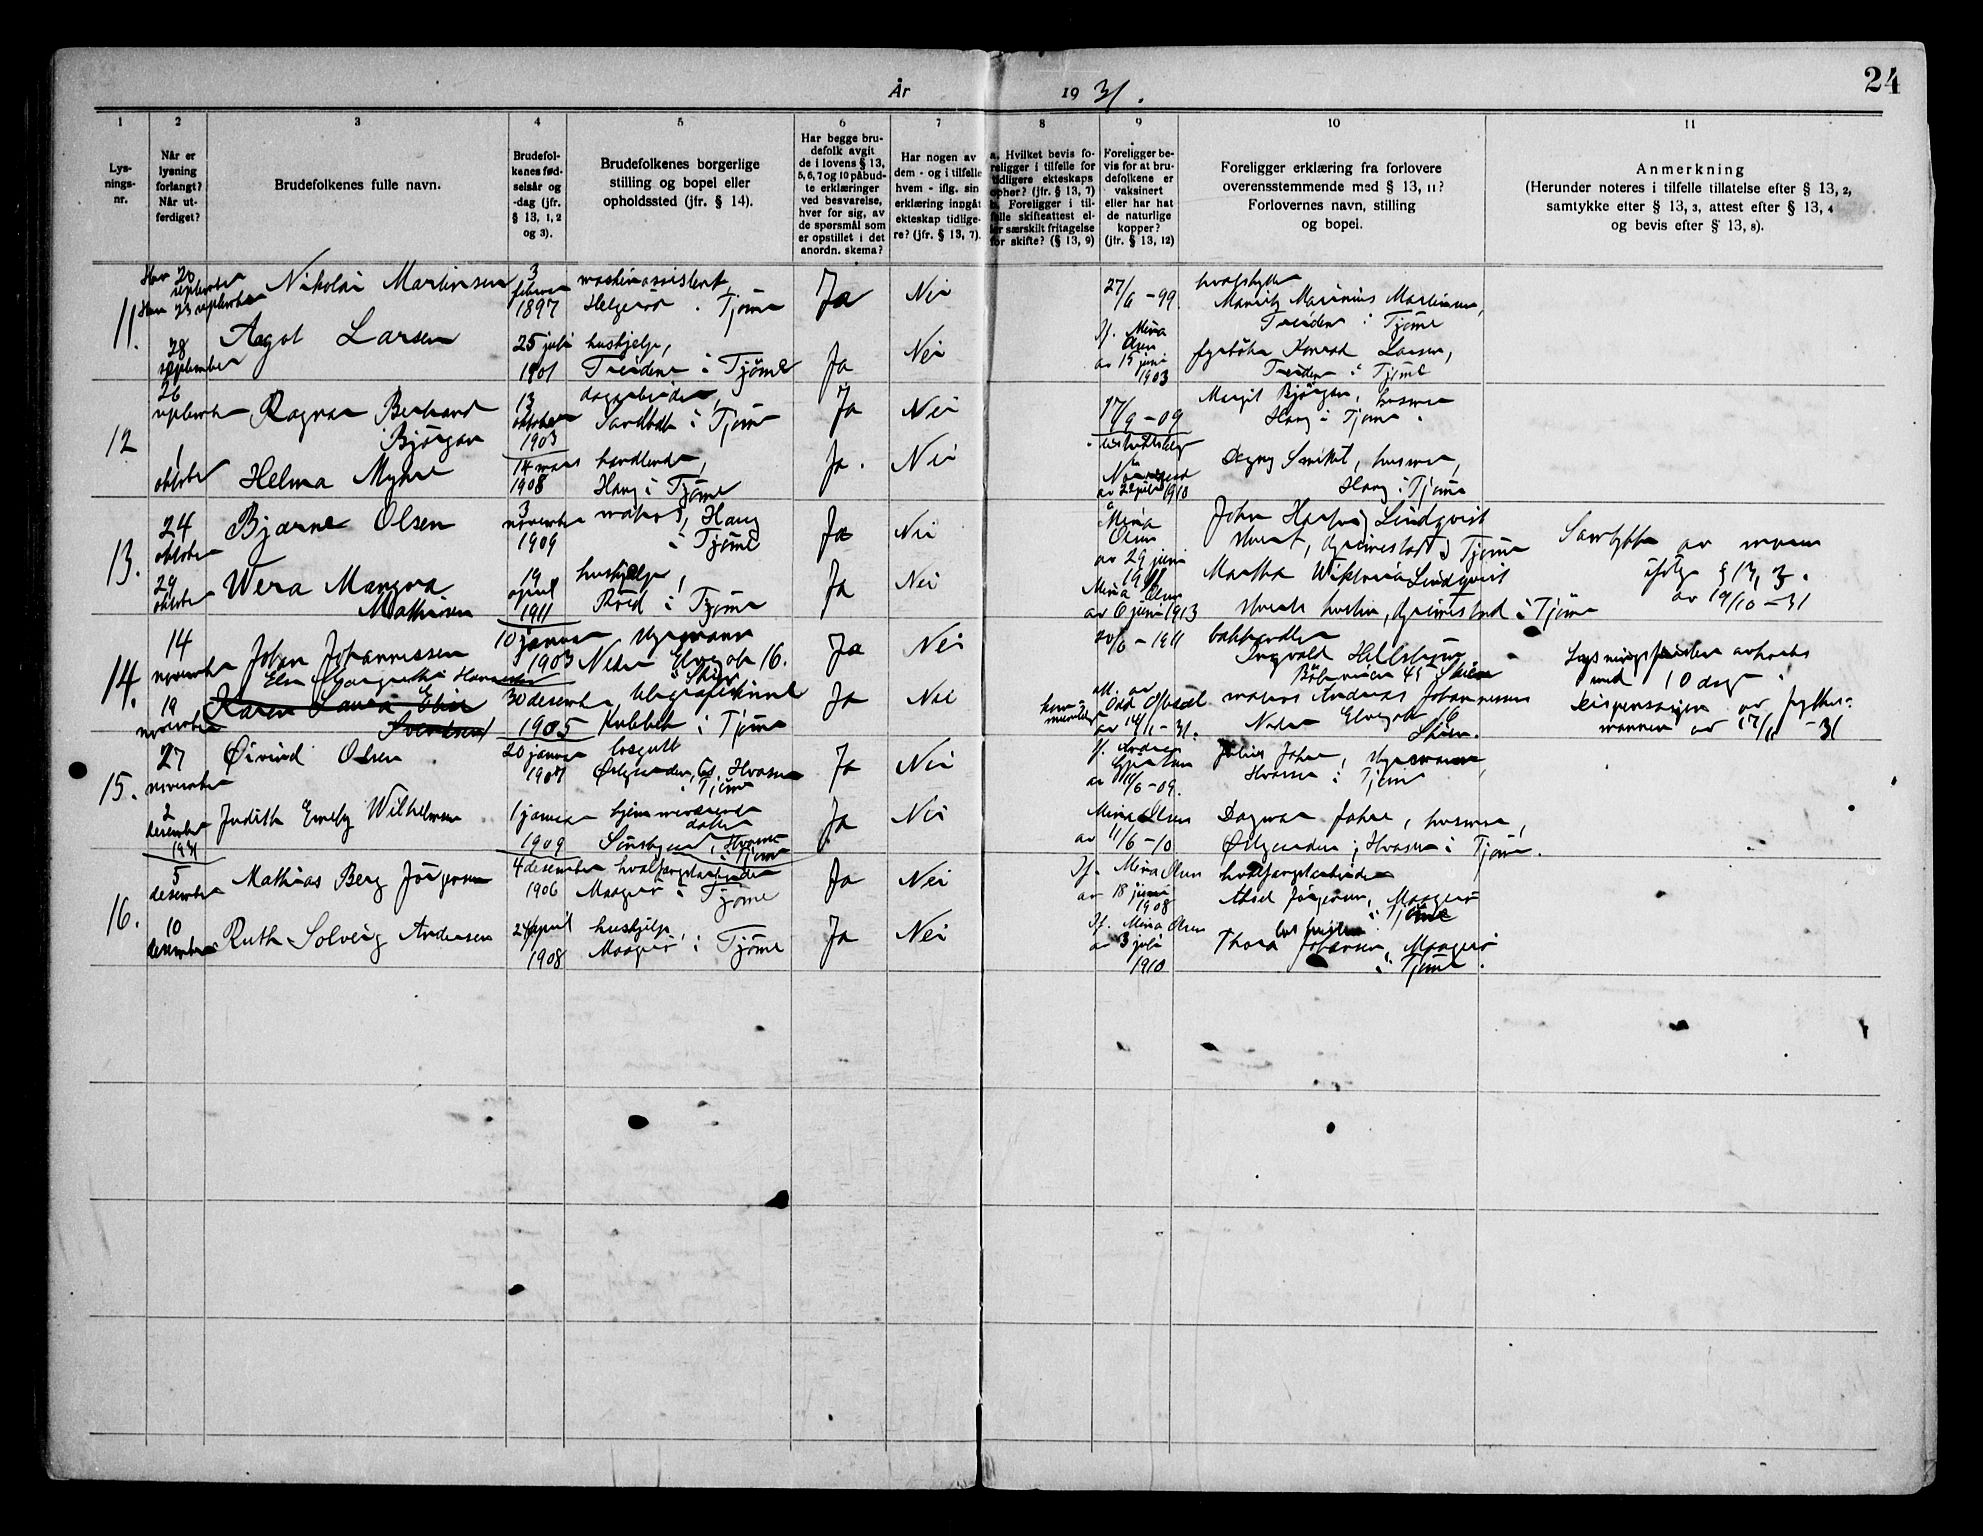 24
År 1931.
1 2 3 4 5 6 7 8 9 10 11
Lysningsnr.
Når er lysning forlangt? Når utferdiget?
Brudefolkenes fulle navn.
Brudefolkenes fødselsår og -dag (jfr. § 13, 1, 2 og 3).
Brudefolkenes borgerlige stilling og bopel eller opholdssted (jfr. § 14).
Har begge brudefolk avgit de i lovens § 13, 5, 6, 7 og 10 påbudte erklæringer ved besvarelse, hver for sig, av de spørsmål som er opstillet i det anordn. skema?
Har nogen av dem - og i tilfelle hvem - iflg. sin erklæring inngåt ekteskap tidligere? (jfr. § 13, 7).
a. Hvilket bevis foreligger i tilfelle for tidligere ekteskaps ophør? (jfr. § 13, 7) b. Foreligger i tilfelle skifteattest eller særskilt fritagelse for skifte? (§ 13, 9)
Foreligger bevis for at brudefolkene er vaksinert eller har hat de naturlige kopper? (jfr. § 13, 12)
Foreligger erklæring fra forlovere overensstemmende med § 13, 11? Forlovernes navn, stilling og bopel.
Anmerkning (Herunder noteres i tilfelle tillatelse efter § 13, 2, samtykke efter § 13, 3, attest efter § 13, 4 og bevis efter § 13, 8).
11.
20 september
23 september
Nikolai Martinsen
3 februar 1897
maskinassistent,
Helgerød i Tjøme
Ja Nei
27/6 - 99.
Mauritz Marinius Martinsen,
Treidene i Tjøme
28 september
Agot Larsen
25 juli 1901
hushjelp,
Treidene i Tjøme
Ja Nei
Jf. Mina Olsen
av 15 juni 1903
fyrbøter Konrad Larsen,
Treidene i Tjøme
12
26 september
Ragnar Bertrand Bjørgan
13 oktober 1903
dagarbeider,
i Tjøme
Ja Nei
17/9 - 09
Margit Bjørgan, husmor
Haug i Tjøme.
1 oktober
Helma Myhre
14 mars 1908
handlende,
Haug i Tjøme
Ja. Nei
1910
Dagny husmor,
Haug i Tjøme
13.
24 oktober
Bjarne Olsen
3 november 1909
matros, Haug
i Tjøme
Ja Nei
Mina Olsen
av 29 juni 1911
John Hartvig Lindqvist
Grimestad, Tjøme
Samtykke av moren
ifølge § 13, 3.
av 19/10 - 31
29 oktober
Wera Mangora Mathisen
19 april 1911
hushjelp,
Rød i Tjøme
Ja Nei
Mina Olsen
av 6 juni 1913
Martha Wiktoria Lindqvist
Grimestad i Tjøme
14.
14 november
Johan Johannessen
10 januar 1903
styrmann
Nedre Elvegate 16.
Skien
Ja Nei
20/6 - 1911
Ingvald Hellstrøm
45 Skien
Lysningsfristen avkortet
med 10 dager.
Dispensasjon av fylkesmannen av 17/11 - 31
19 november
Else Margrethe
Karen Laura Elise Svendsen
30 desember 1905
i Tjøme
Ja Nei
att. av
Odd
av 14/11 - 31.
matros Andreas Johannessen
Nedre Elvegate 16
Skien.
15.
27 november
Øivind Olsen
20 januar
losgutt
Hvasser
i Tjøme
Ja Nei
av 11/6 - 09.
Julius Johre, styrmann,
Hvasser i Tjøme
2 desember 1931
Judith Emely Wilhelmsen
1 januar 1909
hjemmeværende datter
Hvasser
i Tjøme
Ja Nei
Mina Olsen
av 11/6 - 10
Dagmar Johre, husmor,
Hvasser i Tjøme.
16.
5 desember
Mathias Berg Jørgensen
4 desember 1906
hvalfangstarbeider
Maagerø i Tjøme
Ja Nei
Jf. Mina Olsen
av 18 juni 1908
hvalfangstarbeider
Aksel Jørgensen, Maagerø
i Tjøme
10 desember
Ruth Solveig Andersen
24 april 1908
hushjelp,
Maagerø i Tjøme
Ja Nei
Jf. Mina Olsen
av 3 juli 1910
Thora Johansen, Maagerø
i Tjøme.